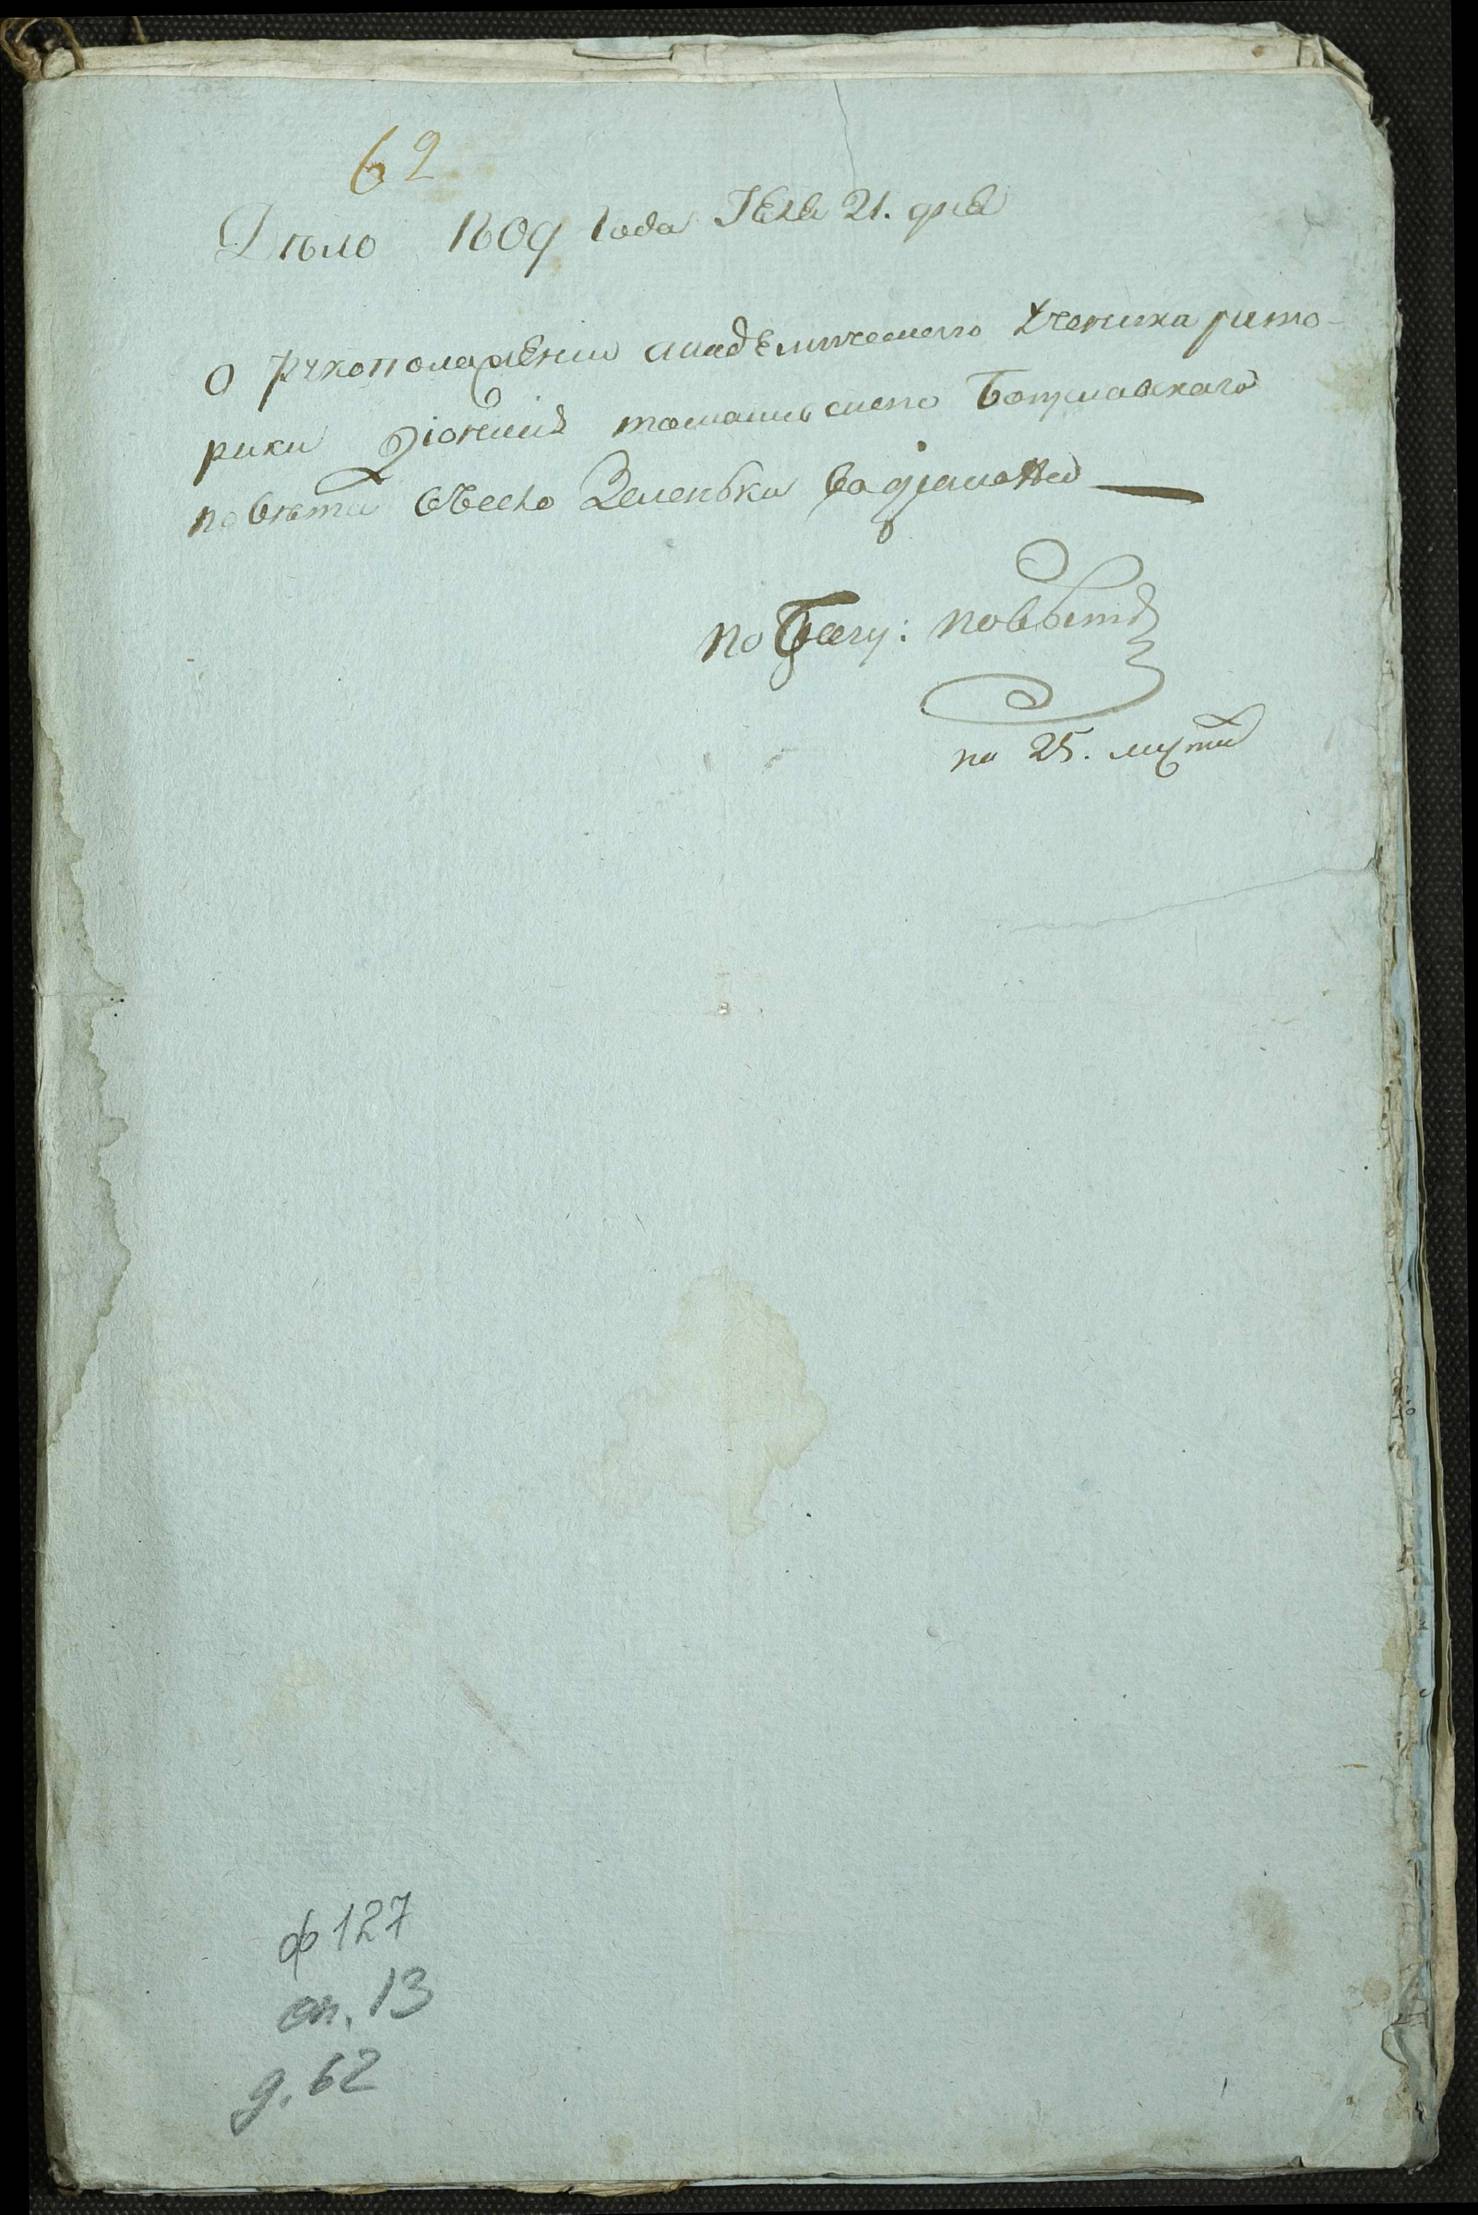 62
Дѣло 1809 года 21. дня
О рукоположеніи академическаго ученика рито-
рики Діонисія Богуславскаго
повѣта въ село Зеленьки во діакона
по Богу: повѣту
на 25. листа
ф 127
оп. 13
д. 62